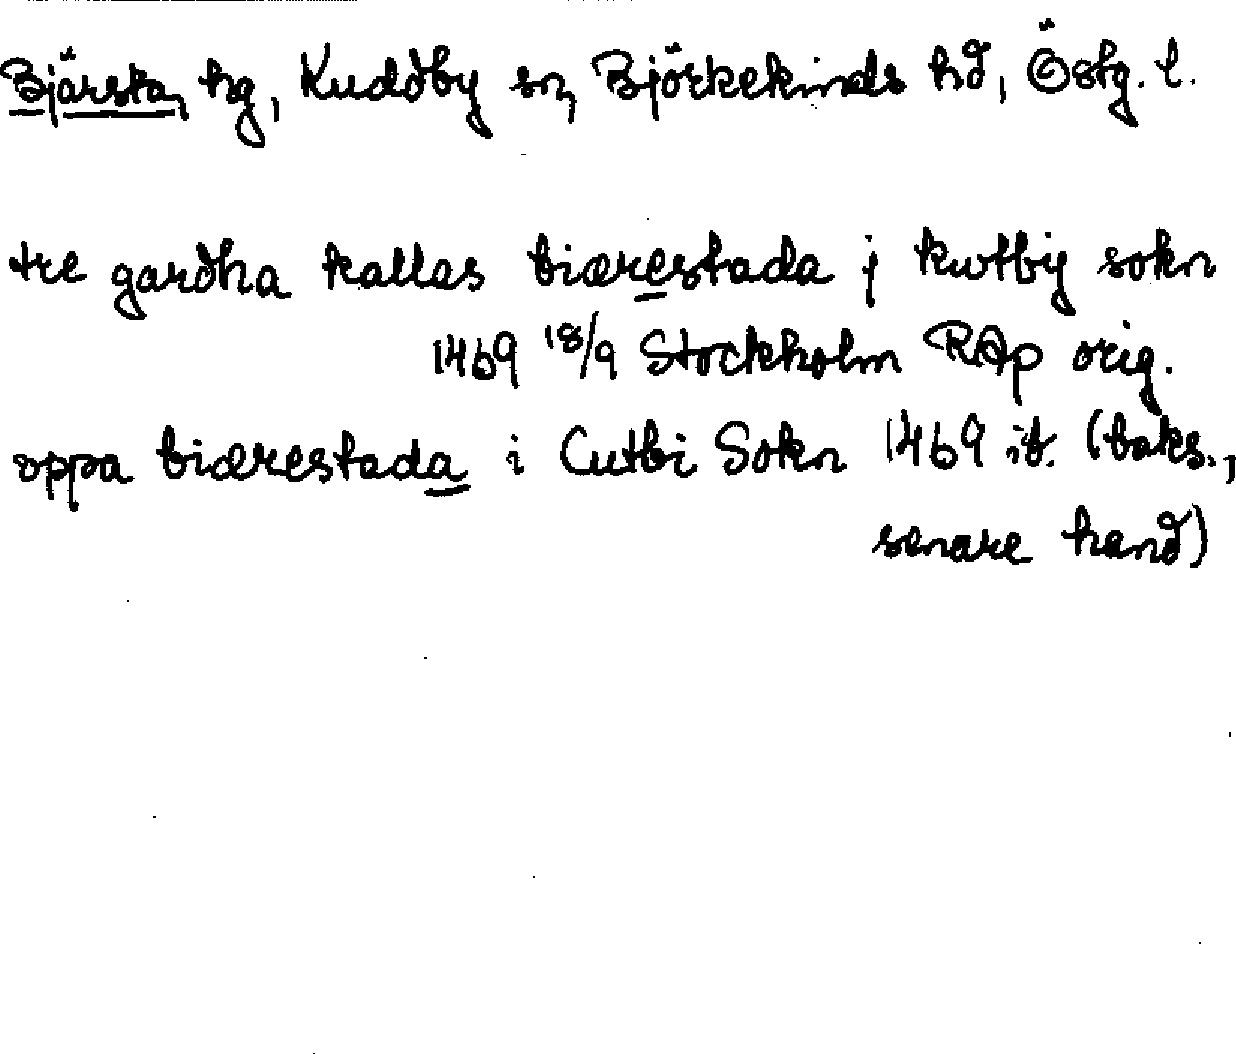 Bjärsta, hg, Kuddby sn, Björkekinds hd, Östg. l.
tre gardha kallas biærestada j kwtby sokn
1469 18/9 Stockholm RAp orig.
oppa biærestada i Cutbi Sokn 1469 ib. (baks.,
senare hand)